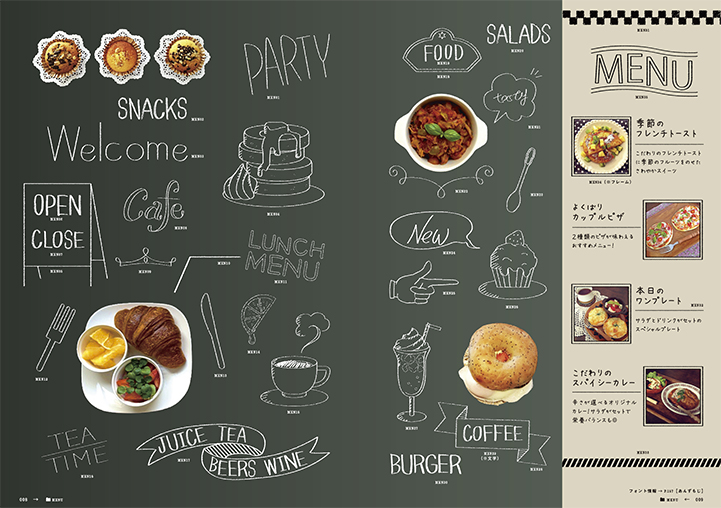 PARTY
SNACKS
Welcome
OPEN
CLOSE
Cafe
LUNCH
MENU
TEA
TIME
JUICE TEA
BEERS WINE
FOOD
SALADS
tasty
New
COFFEE
BURGER
MENU
季節の
フレンチトースト
こだわりのフレンチトースト
に季節のフルーツをのせた
さわやかスイーツ
よくばり
カップルピザ
2種類のピザが味わえる
おすすめメニュー!
本日の
ワンプレート
サラダとドリンクがセットの
スペシャルプレート
こだわりの
スパイシーカレー
辛さが選べるオリジナル
カレー!サラダがセットで
栄養バランスも◎
フォント情報→P.187 [あんずもじ]
MENU
MENU